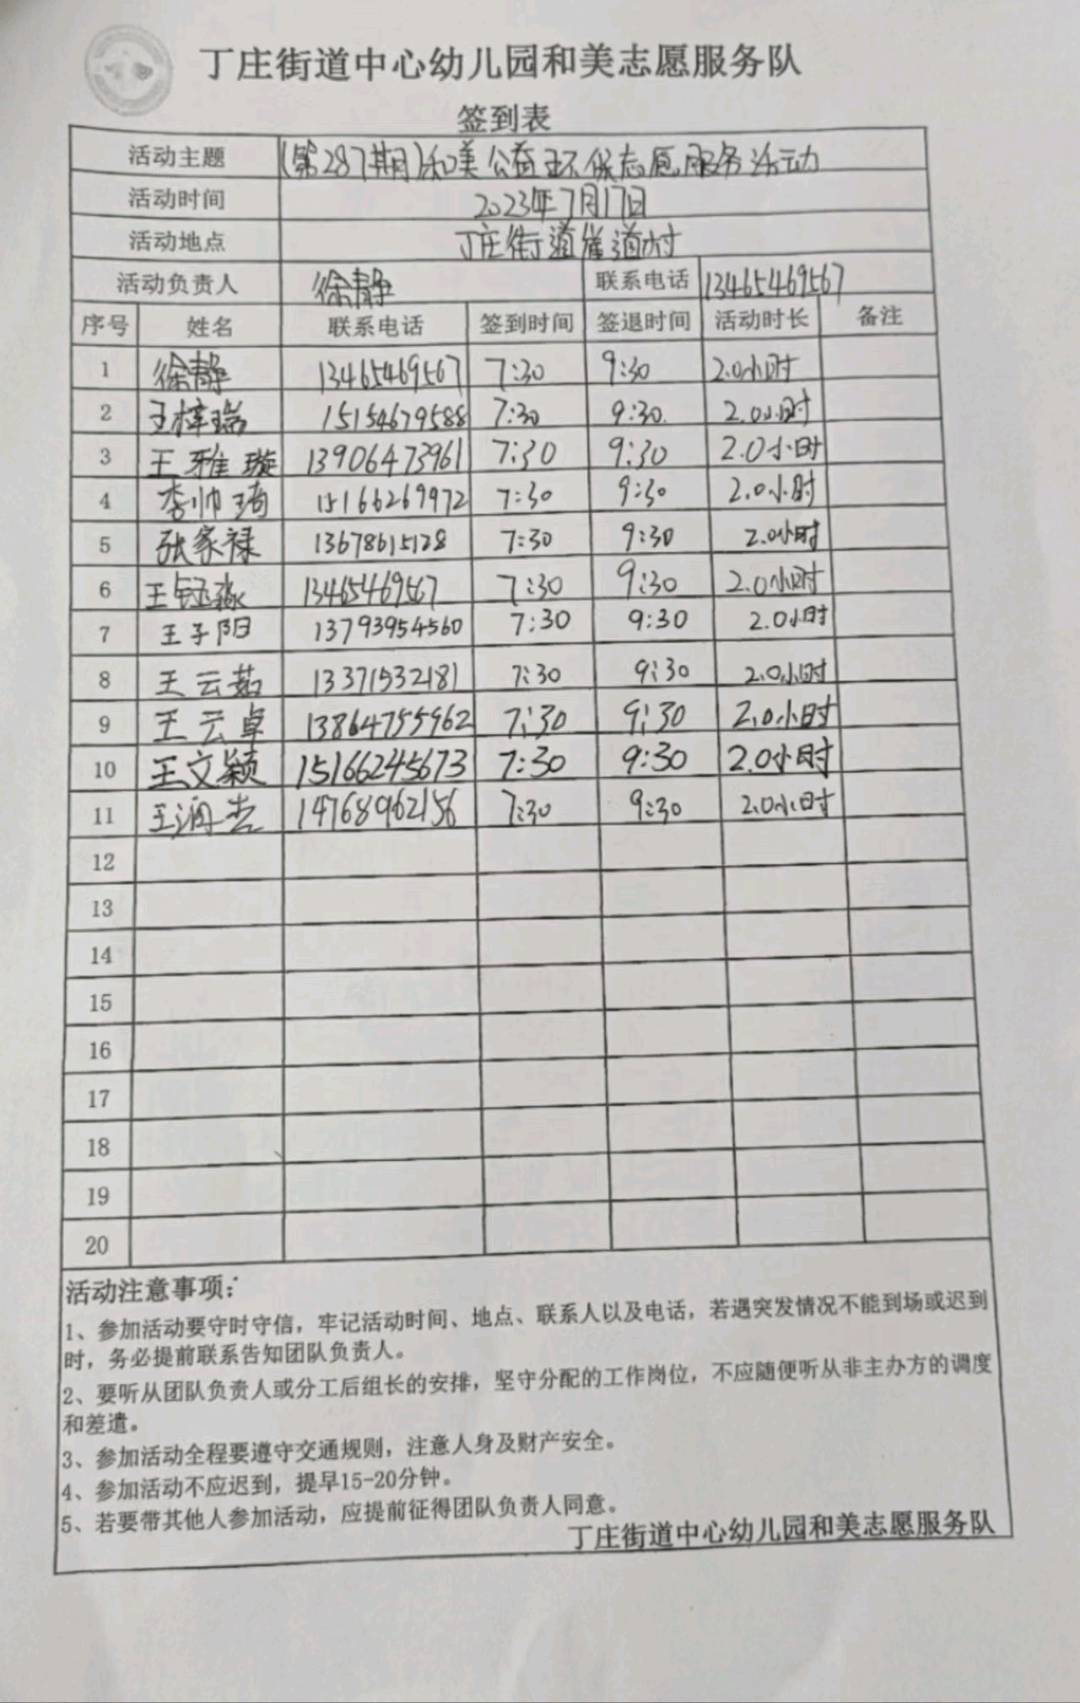 丁庄街道中心幼儿园和美志愿服务队
签到表
活动主题 (第287期)和美公益环保志愿服务活动
活动时间 2023年7月17日
活动地点 丁庄街道崔道村
活动负责人 徐静 联系电话 13465469567
序号 姓名 联系电话 签到时间 签退时间 活动时长 备注
1 徐静 13465469567 7:30 9:30 2.0小时
2 王梓瑞 15154679588 7:30 9:30. 2.0小时
3 王雅璇 13906473961 7:30 9:30 2.0小时
4 李帅琦 15166269972 7:30 9:30 2.0小时
5 张家禄 13678615128 7:30 9:30 2.0小时
6 王钰淼 13465469567 7:30 9:30 2.0小时
7 王子阳 13793954560 7:30 9:30 2.0小时
8 王云茹 13371532181 7:30 9:30 2.0小时
9 王云卓 13864755962 7:30 9:30 2.0小时
10 王文颖 15166245673 7:30 9:30 2.0小时
11 王润 14768962156 7:30 9:30 2.0小时
12
13
14
15
16
17
18
19
20
活动注意事项:
1、参加活动要守时守信，牢记活动时间、地点、联系人以及电话，若遇突发情况不能到场或迟到
时，务必提前联系告知团队负责人。
2、要听从团队负责人或分工后组长的安排，坚守分配的工作岗位，不应随便听从非主办方的调度
和差遣。
3、参加活动全程要遵守交通规则，注意人身及财产安全。
4、参加活动不应迟到，提早15-20分钟。
5、若要带其他人参加活动，应提前征得团队负责人同意。
丁庄街道中心幼儿园和美志愿服务队